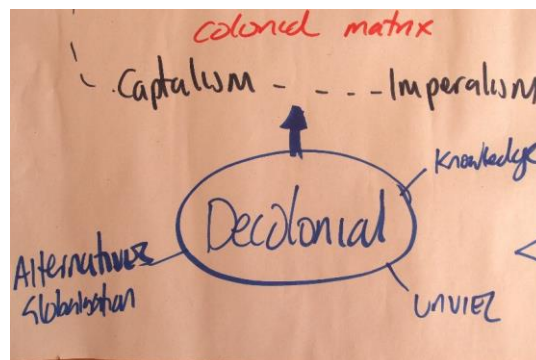 colonial matrix
Captalism - - - - Imperalism
Knowledge
Decolonial
Alternatives
Globalisation
UNVIEL